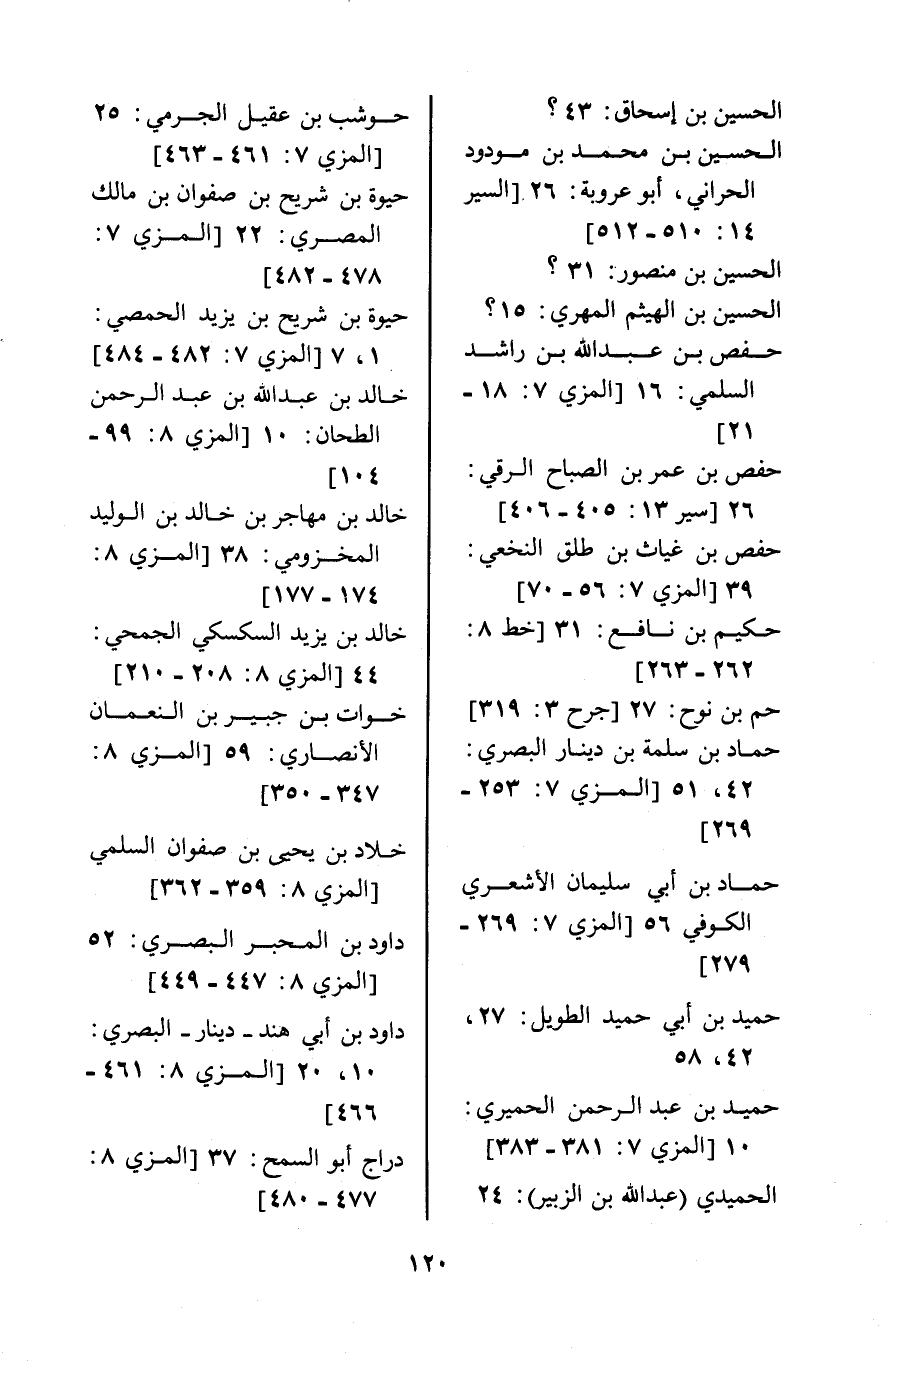 الحسين بن إسحاق: ٤٣ ؟
الحسين بن محمد بن مودود
الحراني، أبو عروبة: ٢٦ [السير
١٤: ٥١٠ـ٥١٢]
الحسين بن منصور: ٣١ ؟
الحسين بن الهيثم المهري: ١٥؟
حفص بن عبدالله بن راشد
السلمي: ١٦ [المزي ٧: ١٨ـ
٢١]
حفص بن عمر بن الصباح الرقي:
٢٦ [سير ١٣: ٤٠٥ـ٤٠٦]
حفص بن غياث بن طلق النخعي:
٣٩ [المزي ٧: ٥٦ـ٧٠]
حكيم بن نافع: ٣١ [خط ٨:
٢٦٢ـ٢٦٣]
حم بن نوح: ٢٧ [جرح ٣: ٣١٩]
حماد بن سلمة بن دينار البصري:
٤٢، ٥١ [المزي ٧: ٢٥٣ـ
٢٦٩]
حماد بن أبي سليمان الأشعري
الكوفي ٥٦ [المزي ٧: ٢٦٩ـ
٢٧٩]
حميد بن أبي حميد الطويل: ٢٧،
٤٢، ٥٨
حميد بن عبد الرحمن الحميري:
١٠ [المزي ٧: ٣٨١ـ٣٨٣]
الحميدي (عبدالله بن الزبير): ٢٤
حوشب بن عقيل الجرمي: ٢٥
[المزي ٧: ٤٦١ـ٤٦٣]
حيوة بن شريح بن صفوان بن مالك
المصري: ٢٢ [المزي ٧:
٤٧٨ـ٤٨٢]
حيوة بن شريح بن يزيد الحمصي:
١، ٧ [المزي ٧: ٤٨٢ـ٤٨٤]
خالد بن عبدالله بن عبد الرحمن
الطحان: ١٠ [المزي ٨: ٩٩ـ
١٠٤]
خالد بن مهاجر بن خالد بن الوليد
المخزومي: ٣٨ [المزي ٨:
١٧٤ـ١٧٧]
خالد بن يزيد السكسكي الجمحي:
٤٤ [المزي ٨: ٢٠٨ـ٢١٠]
خوات بن جبير بن النعمان
الأنصاري: ٥٩ [المزي ٨:
٣٤٧ـ٣٥٠]
خلاد بن يحيى بن صفوان السلمي
[المزي ٨: ٣٥٩ـ٣٦٢]
داود بن المحبر البصري: ٥٢
[المزي ٨: ٤٤٧ـ٤٤٩]
داود بن أبي هند ـ دينار ـ البصري:
١٠، ٢٠ [المزي ٨: ٤٦١ـ
٤٦٦]
دراج أبو السمح: ٣٧ [المزي ٨:
٤٧٧ـ٤٨٠]
١٢٠